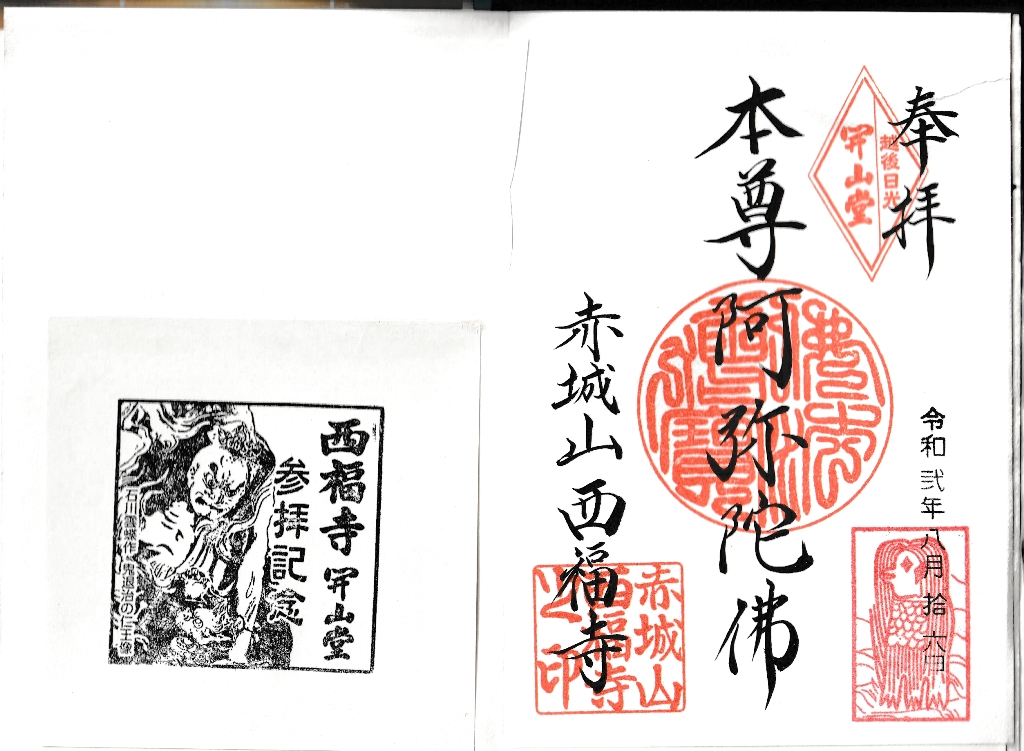 奉拝
越後日光
開山堂
本尊阿弥陀佛
令和弐年八月拾六日
赤城山西福寺
赤城山
西福寺
之印
西福寺 開山堂
参拝記念
石川雲蝶作 鬼退治の仁王像